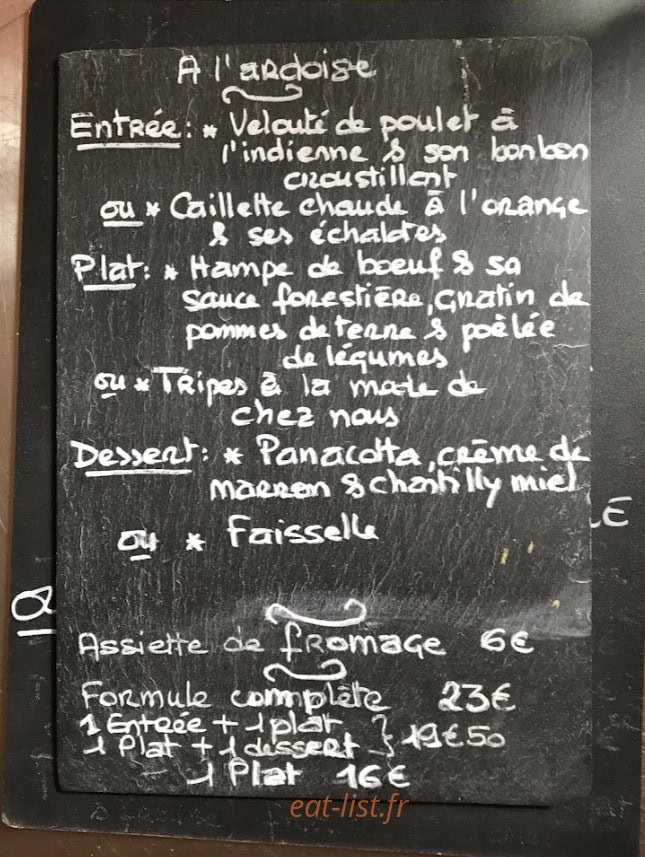 A l'ardoise
Entrée: * Velouté de poulet à
l'indienne & son bonbon
croustillant
ou * Caillette chaude à l'orange
& ses échalotes
Plat: * Hampe de boeuf & sa
sauce forestière, gratin de
pommes de terre & poêlée
de légumes
ou * Tripes à la mode de
chez nous
Dessert: * Panacotta, crème de
marron & chantilly miel
ou * Faisselle
Assiette de fromage 6€
Formule complète 23€
1 Entrée + 1 plat
1 Plat + 1 dessert } 19€50
1 Plat 16€
eat-list.fr